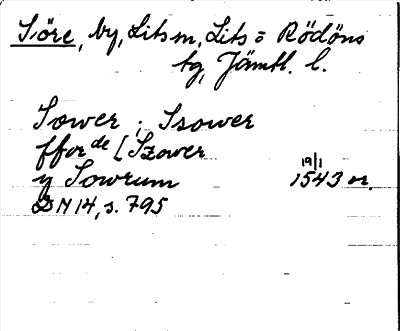 Söre, by, Lits sn, Lits = Rödöns
tg, Jämtl. l.
Sower ; Ssower
ffor de [ Szower
y Sowrum 19/1 1543 or.
DN 14, s. 795